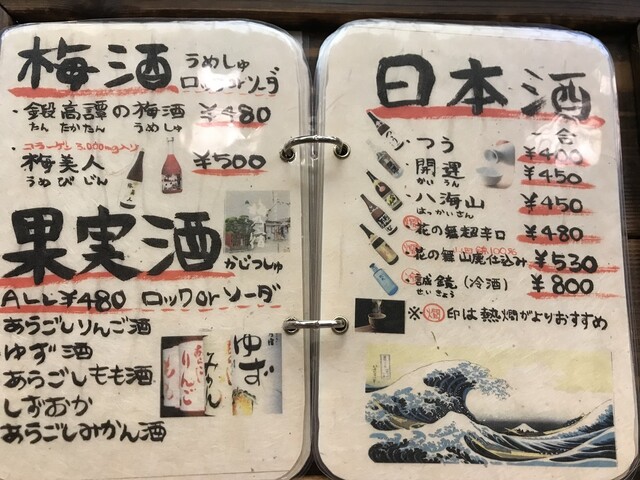 梅酒 うめしゅ
ロックorソーダ
・鍛高譚の梅酒 ¥480
たん たかたん うめしゅ
コラーゲン3,000mg入り
・梅美人 ¥500
うめびじん
果実酒 かじつしゅ
ALL¥480 ロックorソーダ
あらごしりんご酒
ゆず酒
あらごしもも酒
しずおか
あらごしみかん酒
りんご
みかん
ゆず
日本酒
一合
・つう ¥400
・開運 ¥450
かいうん
・八海山 ¥450
はっかいさん
燗 ・花の舞超辛口 ¥480
燗 ・花の舞山廃仕込み ¥530
燗 ・誠鏡(冷酒) ¥800
せいきょう
※燗印は熱燗がよりおすすめ